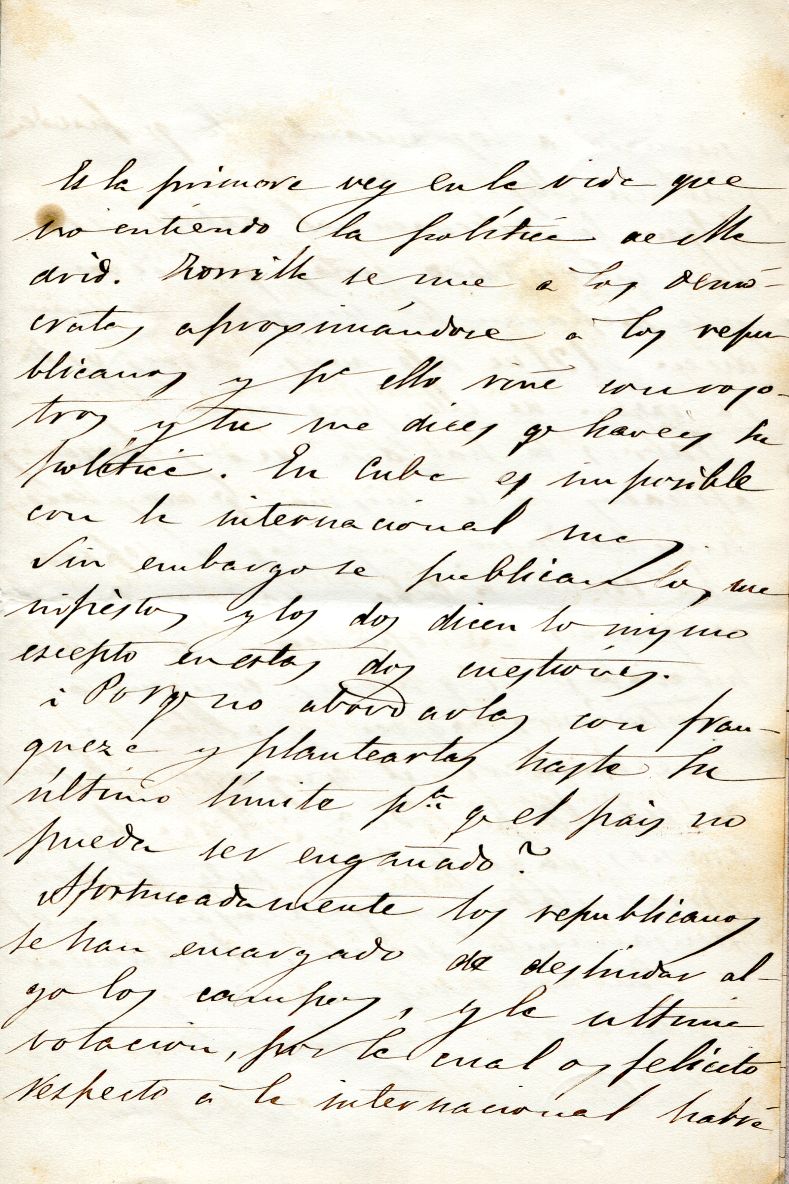 Es la primera vez en la vida que
no entiendo la política de Ma
drid. Zorrilla se une à los demó-
cratas aproximándose à los repu-
blicanos y pr ello riñe con voso-
tros y tu me dices qe haceis su
política. En Cuba es imposible
con la internacional
Sin embargo se publican los ma
nifiestos y los dos dicen lo mismo
escepto en estas dos cuestiones.
¿Porqe no abordarlas con fran-
queza y plantearlas hasta su
último límite pra qe el pais no
pueda ser engañado?
Afortunadamente los republicanos
se han encargado de deslindar al-
go los campos, y la ultima
votacion, por la cual os felicito
respecto à la internacional habrá